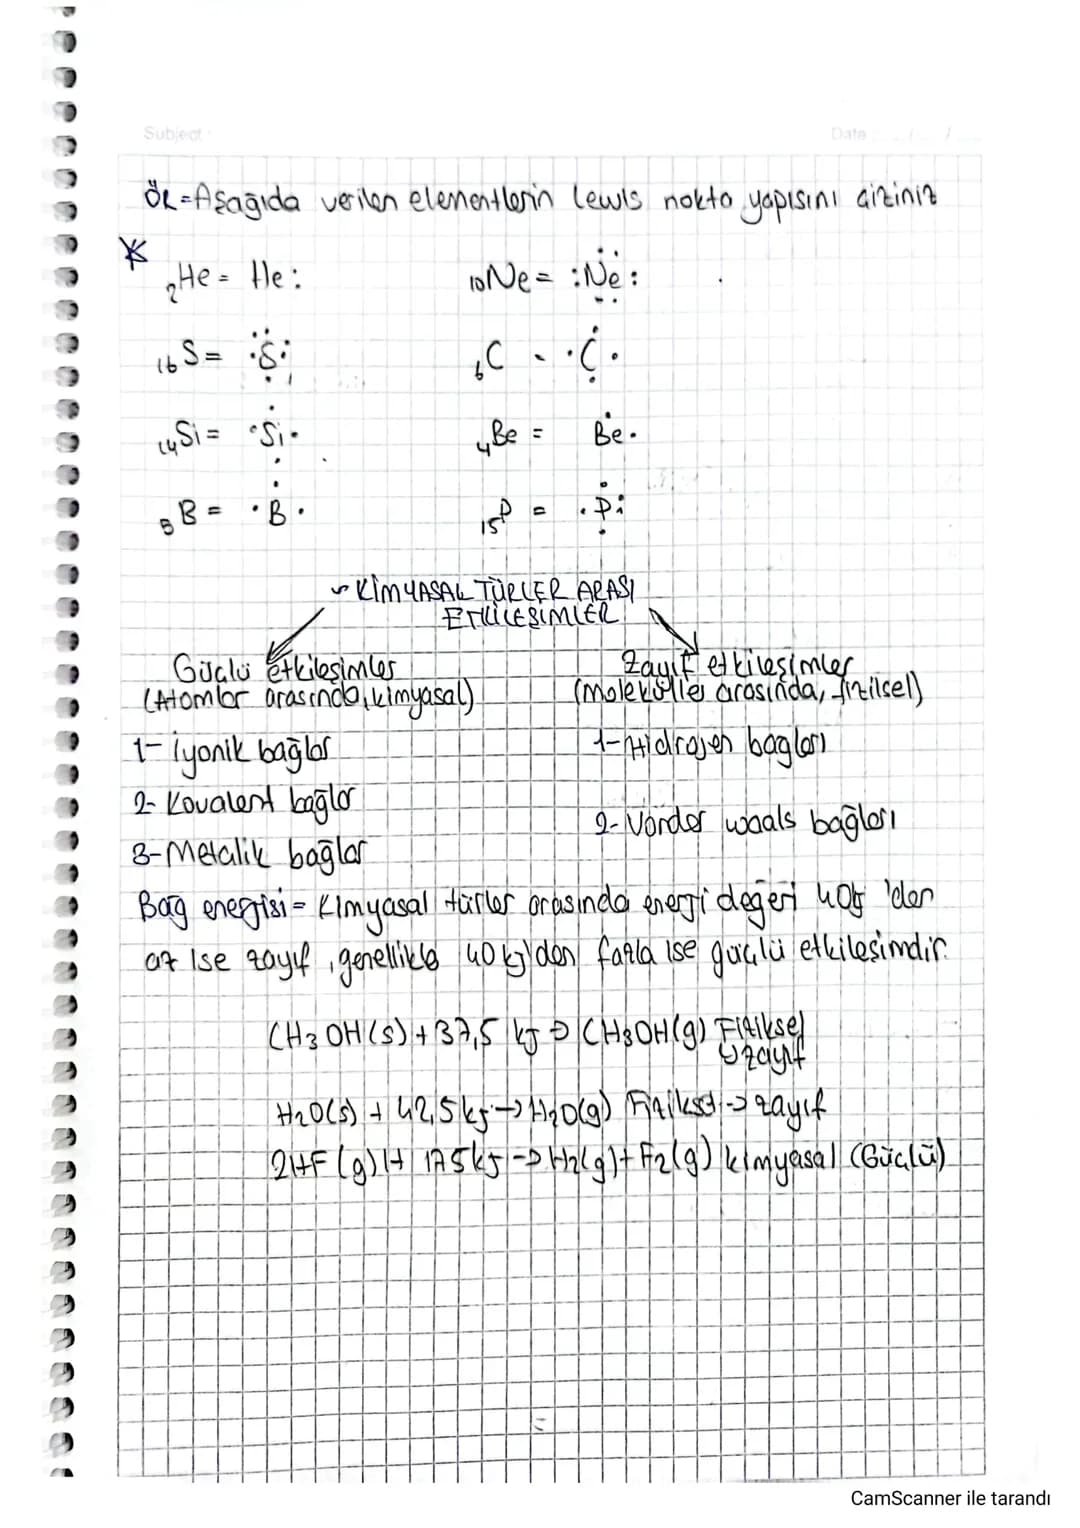 Subject :
Date : ... / ... / ...
ÖR=Aşağıda verilen elementlerin lewis nokta yapısını çiziniz
₂He = He:
₁₀Ne = :Ne:
₁₆S = S
₆C - C
₁₄Si = Si
₄Be = Be
₅B = B
₁₅P = P
KİMYASAL TÜRLER ARASI
ETKİLEŞİMLER
Güçlü etkileşimler
(Atomlar arasında, kimyasal)
1- iyonik bağlar
2- Kovalent bağlar
3- Metalik bağlar
Zayıf etkileşimler
(moleküller arasında, fizilsel)
1- Hidrojen bagları
2- Vander waals bağları
Bag energisi = Kimyasal türler arasında energi değeri 40kj 'den
az ise zayıf, genellikle 40 kj'den fazla ise güçlü etkileşimdir.
CH₃OH(s) + 37,5 kj → CH₃OH(g) Fiziksel
zayıf
H₂O(s) + 42,5 kj → H₂O(g) Fiziksel → zayıf
2HF(g) + 175 kj → H₂(g) + F₂(g) kimyasal (Güçlü)
CamScanner ile tarandı